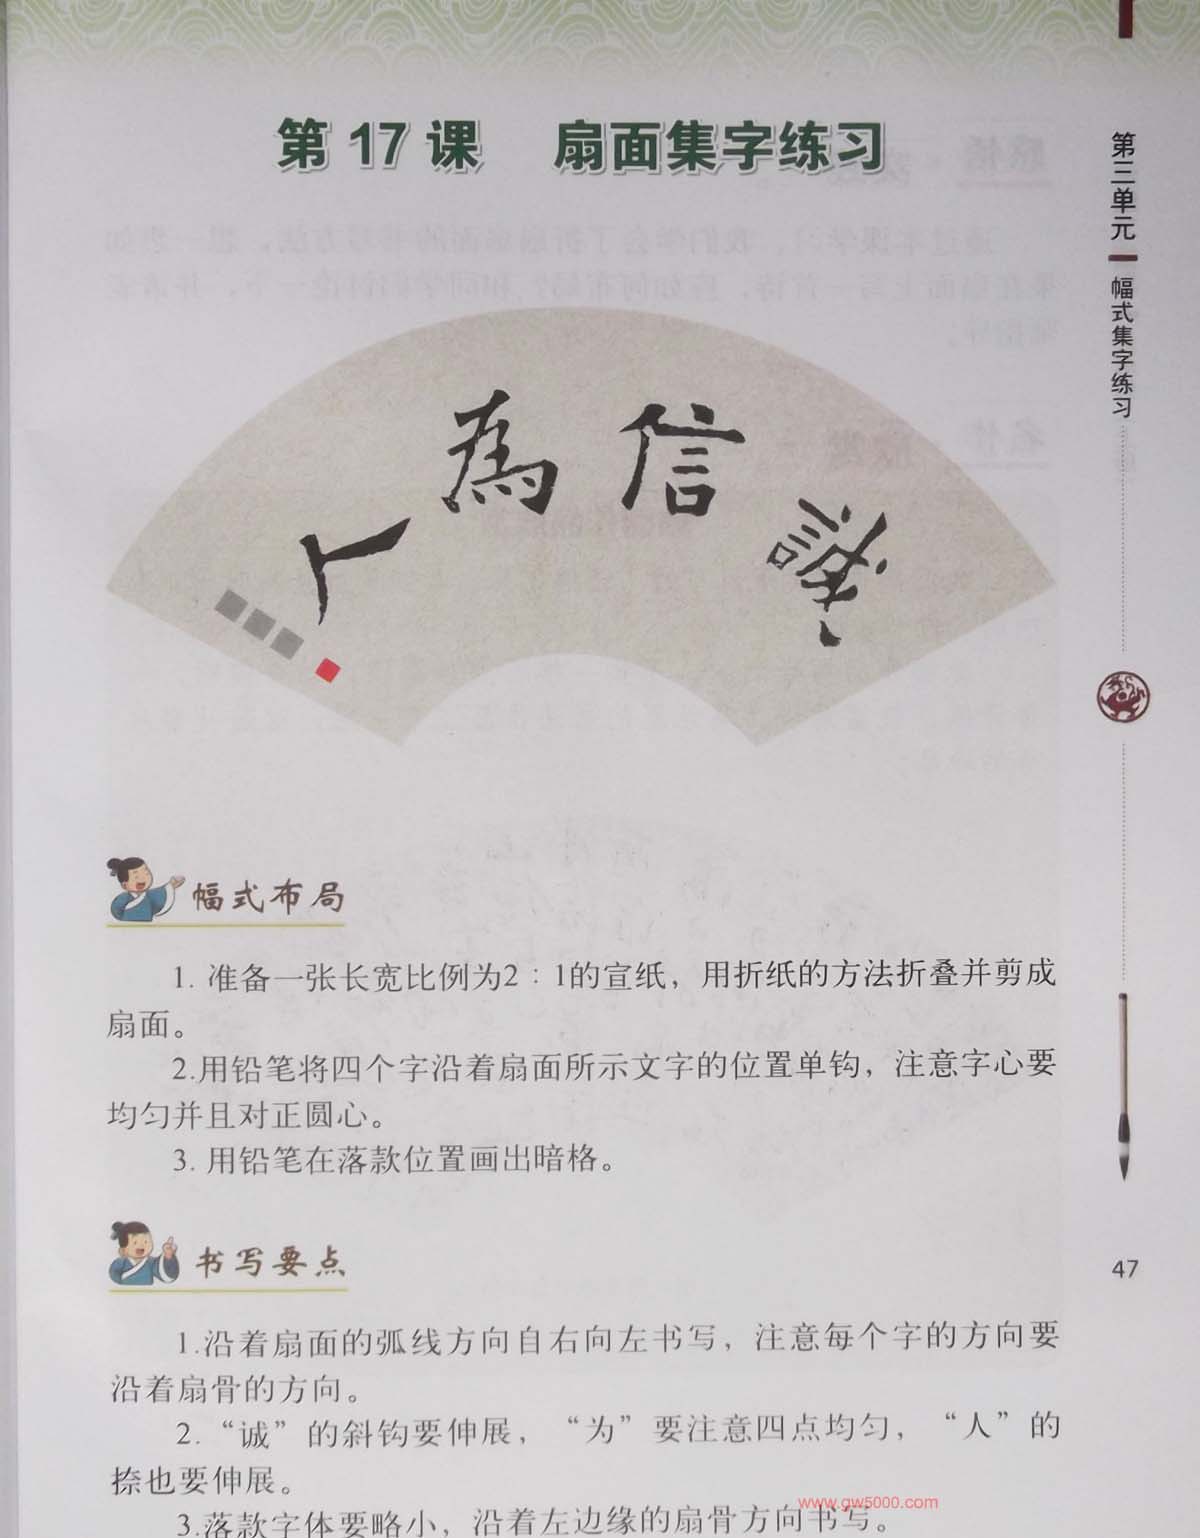 第 17 课 扇面集字练习
誠信為人
幅式布局
1. 准备一张长宽比例为2：1的宣纸，用折纸的方法折叠并剪成
扇面。
2.用铅笔将四个字沿着扇面所示文字的位置单钩，注意字心要
均匀并且对正圆心。
3. 用铅笔在落款位置画出暗格。
书写要点
1.沿着扇面的弧线方向自右向左书写，注意每个字的方向要
沿着扇骨的方向。
2. “诚”的斜钩要伸展，“为”要注意四点均匀，“人”的
捺也要伸展。
3.落款字体要略小，沿着左边缘的扇骨方向书写。
第三单元
幅式集字练习
47
www.gw5000.com